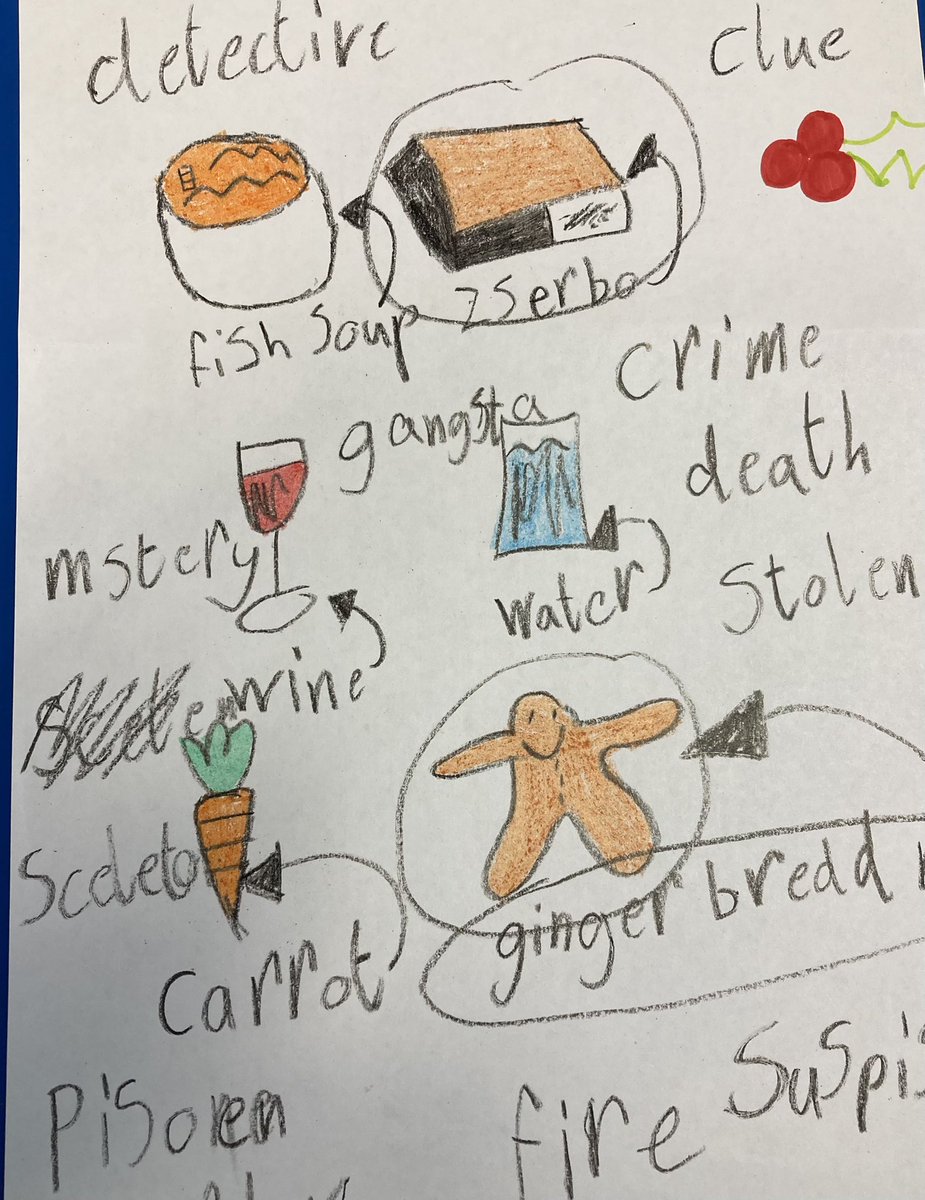 detective
clue
fish soup
zserbo
crime
gangsta
death
mstery
water
stolen
wine
Sceleto
ginger bredd
carrot
Suspis
Pisoren
fire